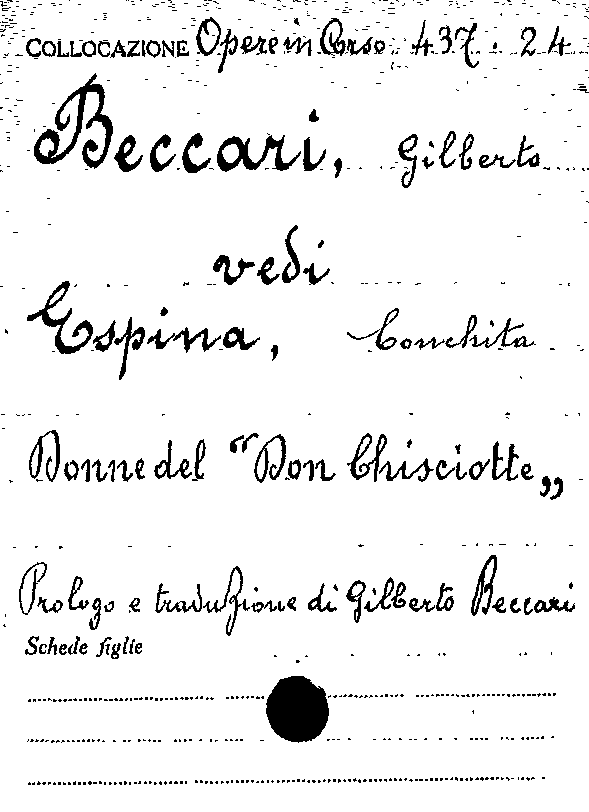 COLLOCAZIONE Opere in Corso. 437. 24
Beccari, Gilberto
vedi
Espina, Conchita
Donne del "Don Chisciotte„
Prologo e traduzione di Gilberto Beccari
Schede figlie